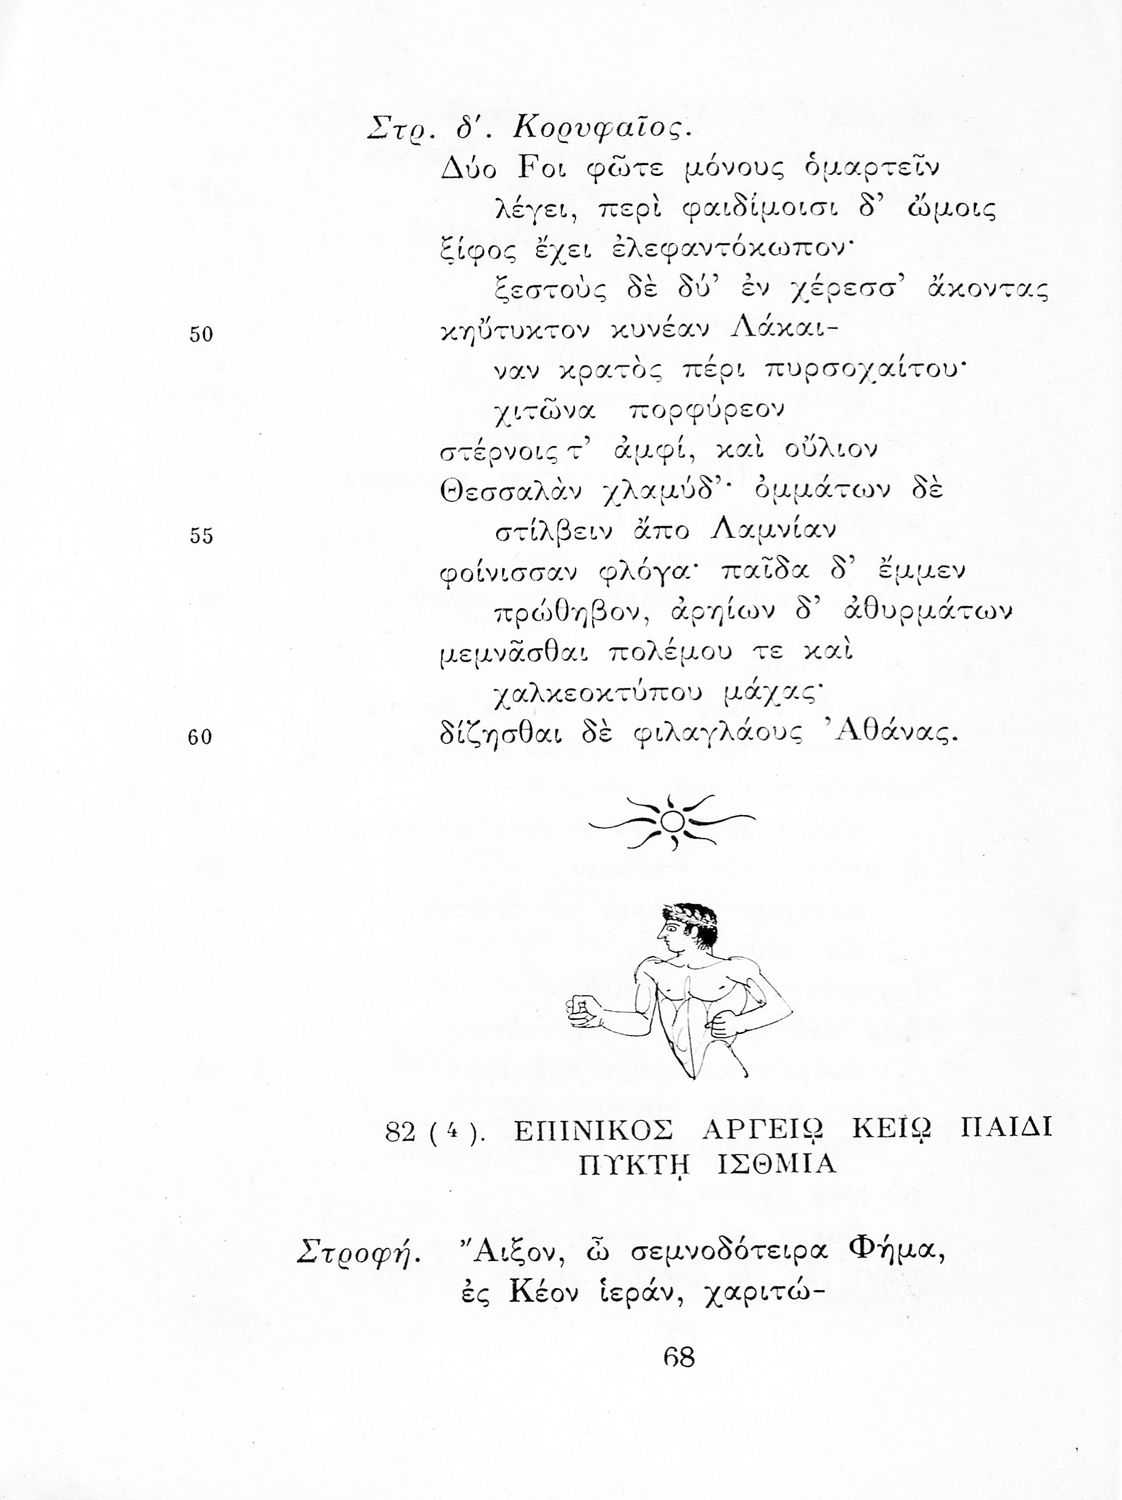 Στρ. δ′. Κορυφαῖος.
Δύο Ϝοι φῶτε μόνους ὁμαρτεῖν
λέγει, περὶ φαιδίμοισι δ’ ὤμοις
ξίφος ἔχει ἐλεφαντόκωπον·
ξεστοὺς δὲ δύ’ ἐν χέρεσσ’ ἄκοντας
50 κηὔτυκτον κυνέαν Λάκαι-
ναν κρατὸς πέρι πυρσοχαίτου·
χιτῶνα πορφύρεον
στέρνοις τ’ ἀμφί, καὶ οὔλιον
Θεσσαλὰν χλαμύδ’· ὀμμάτων δὲ
55 στίλβειν ἄπο Λαμνίαν
φοίνισσαν φλόγα· παῖδα δ’ ἔμμεν
πρώθηβον, ἀρηΐων δ’ ἀθυρμάτων
μεμνᾶσθαι πολέμου τε καὶ
χαλκεοκτύπου μάχας·
60 δίζησθαι δὲ φιλαγλάους Ἀθάνας.
82 (4). ΕΠΙΝΙΚΟΣ ΑΡΓΕΙῼ ΚΕΙῼ ΠΑΙΔΙ
ΠΥΚΤῌ ΙΣΘΜΙΑ
Στροφή. Ἄϊξον, ὦ σεμνοδότειρα Φήμα,
ἐς Κέον ἱεράν, χαριτώ-
68